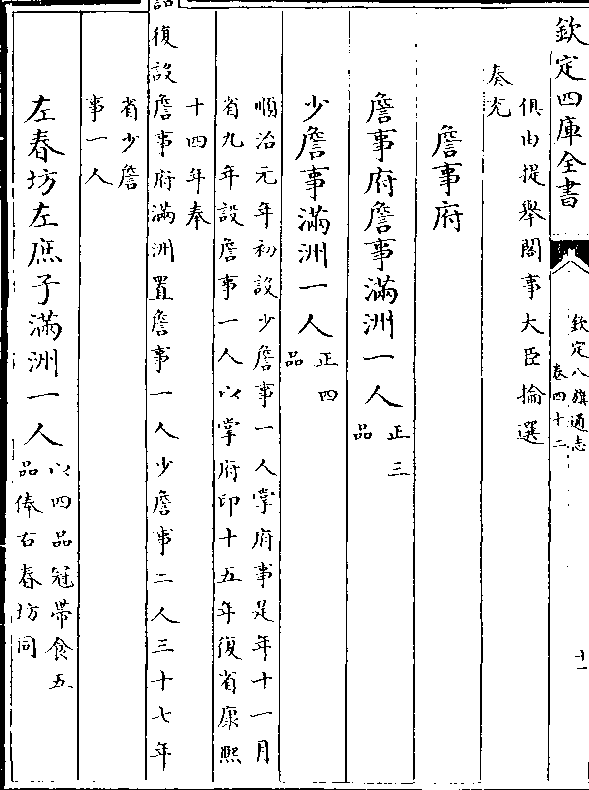 欽定四庫全書
欽定八旗通志
卷四十二
十一
俱由提舉閣事大臣掄選
奏充
詹事府
詹事府詹事滿洲一人正三
品
少詹事滿洲一人正四
品
順治元年初設少詹事一人掌府事是年十一月
省九年設詹事一人以掌府印十五年復省康熙
十四年奉
詔復設詹事府滿洲置詹事一人少詹事二人三十七年
省少詹
事一人
左春坊左庶子滿洲一人以四品冠帶食五
品俸右春坊同